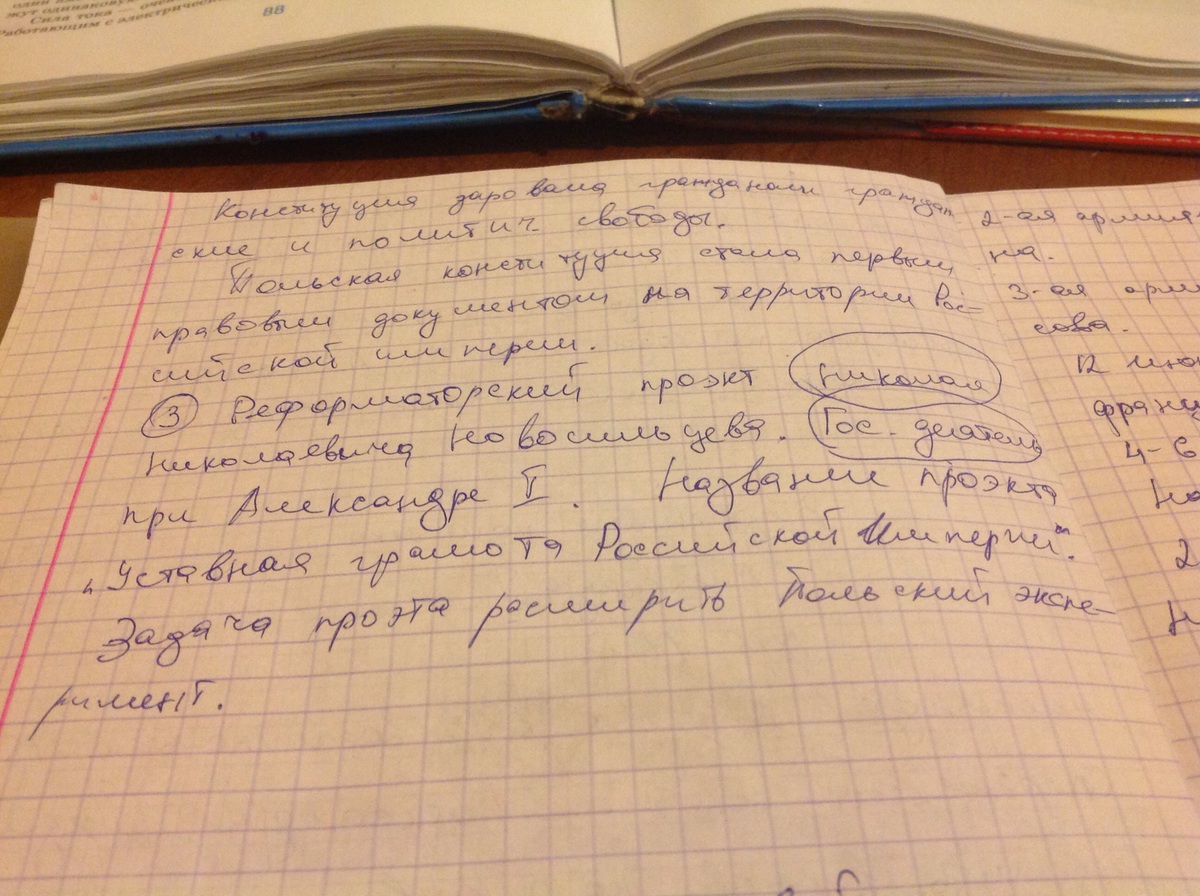 88
Сила тока — очень
Работающим с электрическ
Конституция даровала гражданам граждан
ские и политич. свободы.
Польская конституция стала первым
правовым документом на территории Рос-
сийской империи.
3 Реформаторский проэкт Николая
Николаевича Новосильцева. Гос. деятель
при Александре I. Название проэкта
„Уставная грамота Российской Империи".
Задача проэта расширить Польский экспе-
римент.
2-ая армия
на.
3-ая арм
сова.
12 июн
франц
4-6
На
2
Н